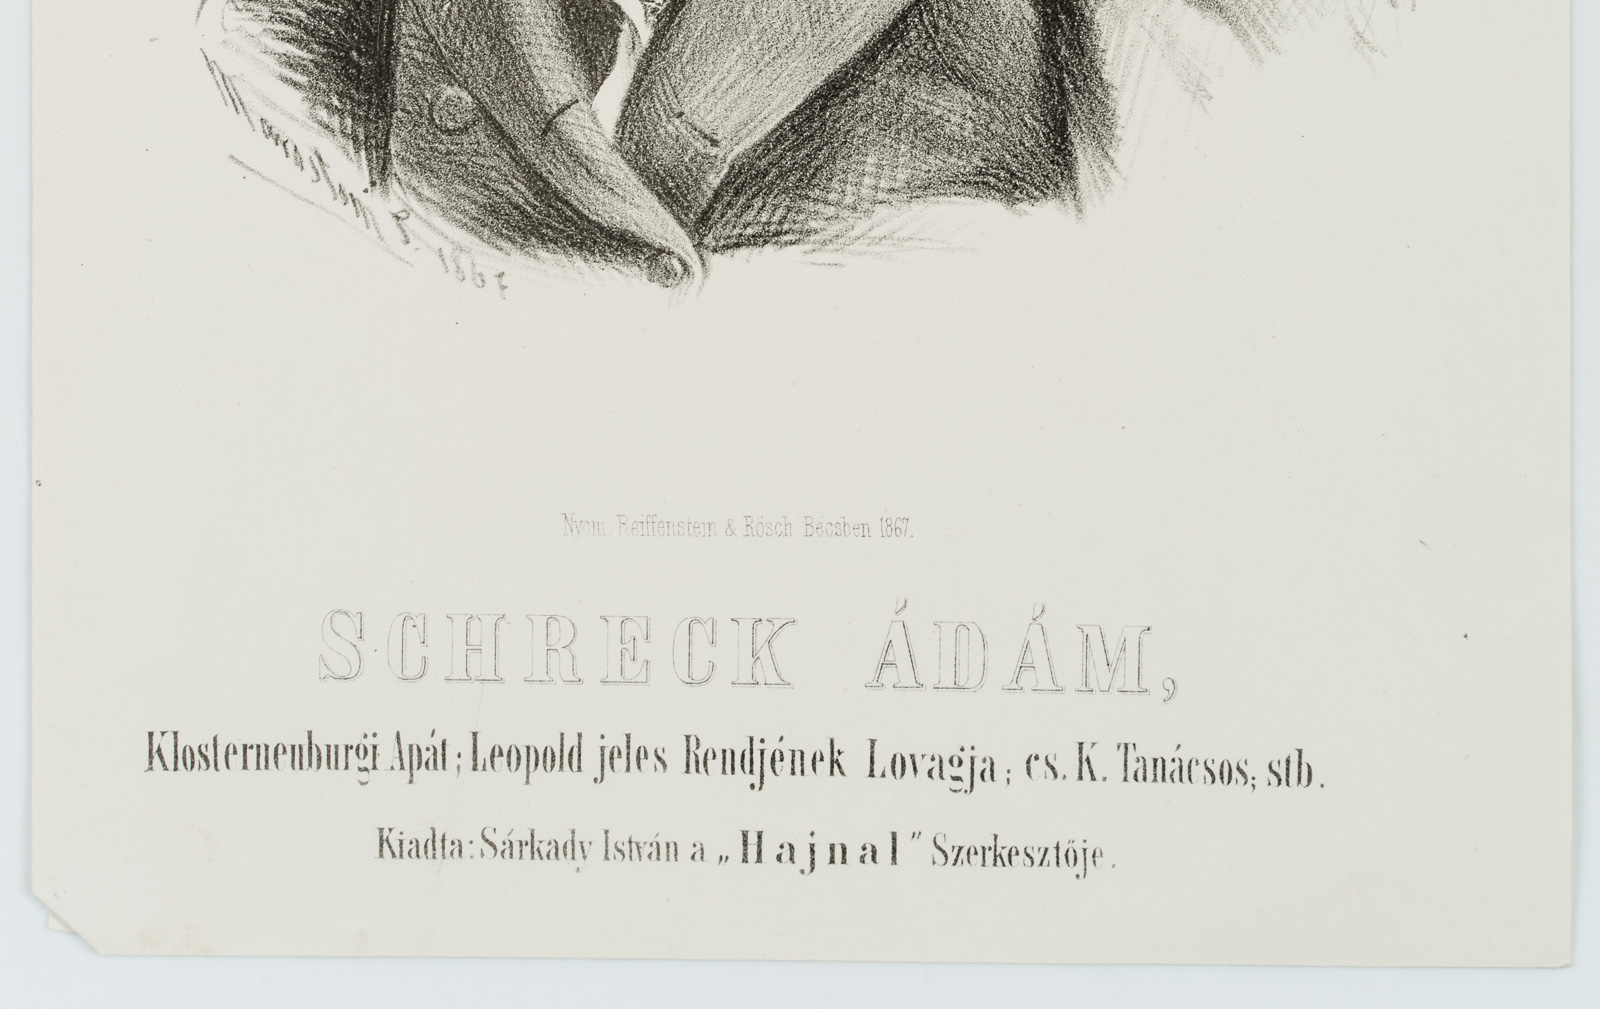 Marastoni J. 1867
Nyom. Reiffenstein & Rösch Bécsben 1867.
SCHRECK ÁDÁM,
Klosterneuburgi Apát; Leopold jeles Rendjének Lovagja; cs. K. Tanácsos, stb.
Kiadta: Sárkady István a „Hajnal" Szerkesztője.